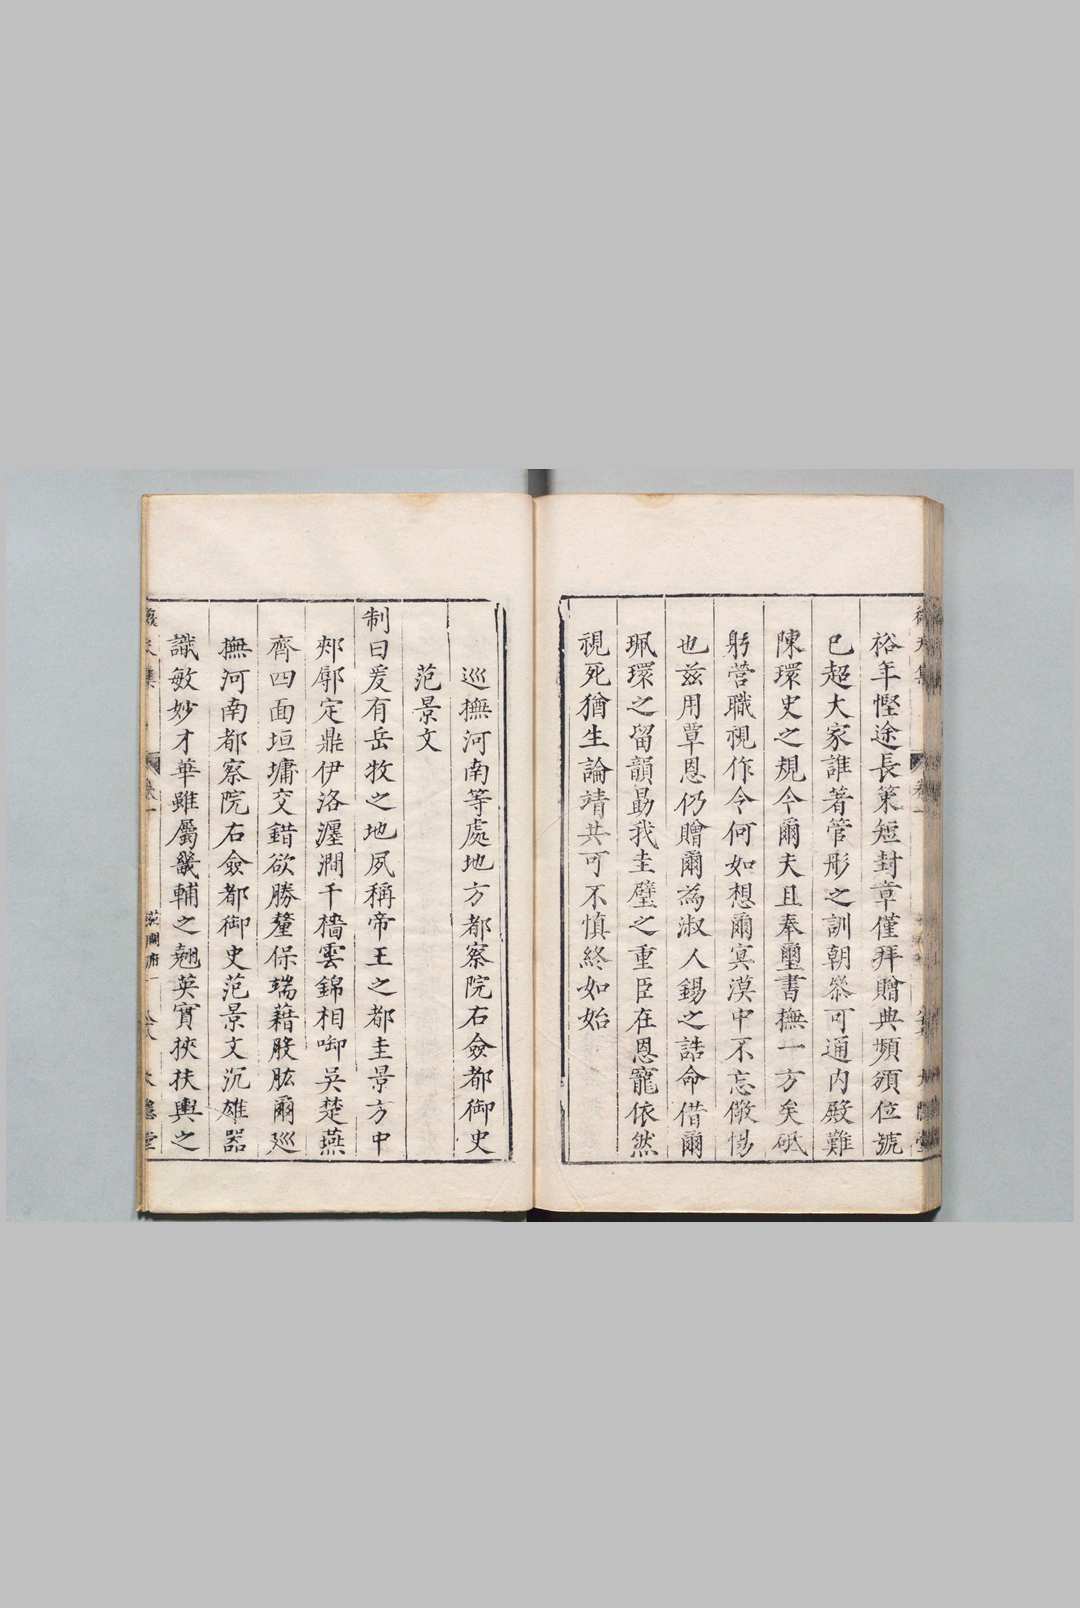 裕年慳途長策短封章僅拜贈典頻頒位號
已超大家誰著管彤之訓朝叅可通内殿難
陳環史之規今爾夫且奉璽書撫一方矣砥
躬营職視作令何如想爾冥漠中不忘儆惕
也兹用覃恩仍贈爾為淑人錫之誥命借爾
珮環之留韻勗我圭璧之重臣在恩寵依然
視死猶生論靖共可不慎終如始
巡撫河南等處地方都察院右僉都御史
范景文
制曰爰有岳牧之地夙稱帝王之都圭景方中
郟鄏定鼎伊洛瀍澗千檣雲錦相啣吳楚燕
齊四面垣墉交錯欲勝釐保端藉股肱爾廵
撫河南都察院右僉都御史范景文沉雄器
識敏妙才華雖屬畿輔之翹英實挾扶輿之